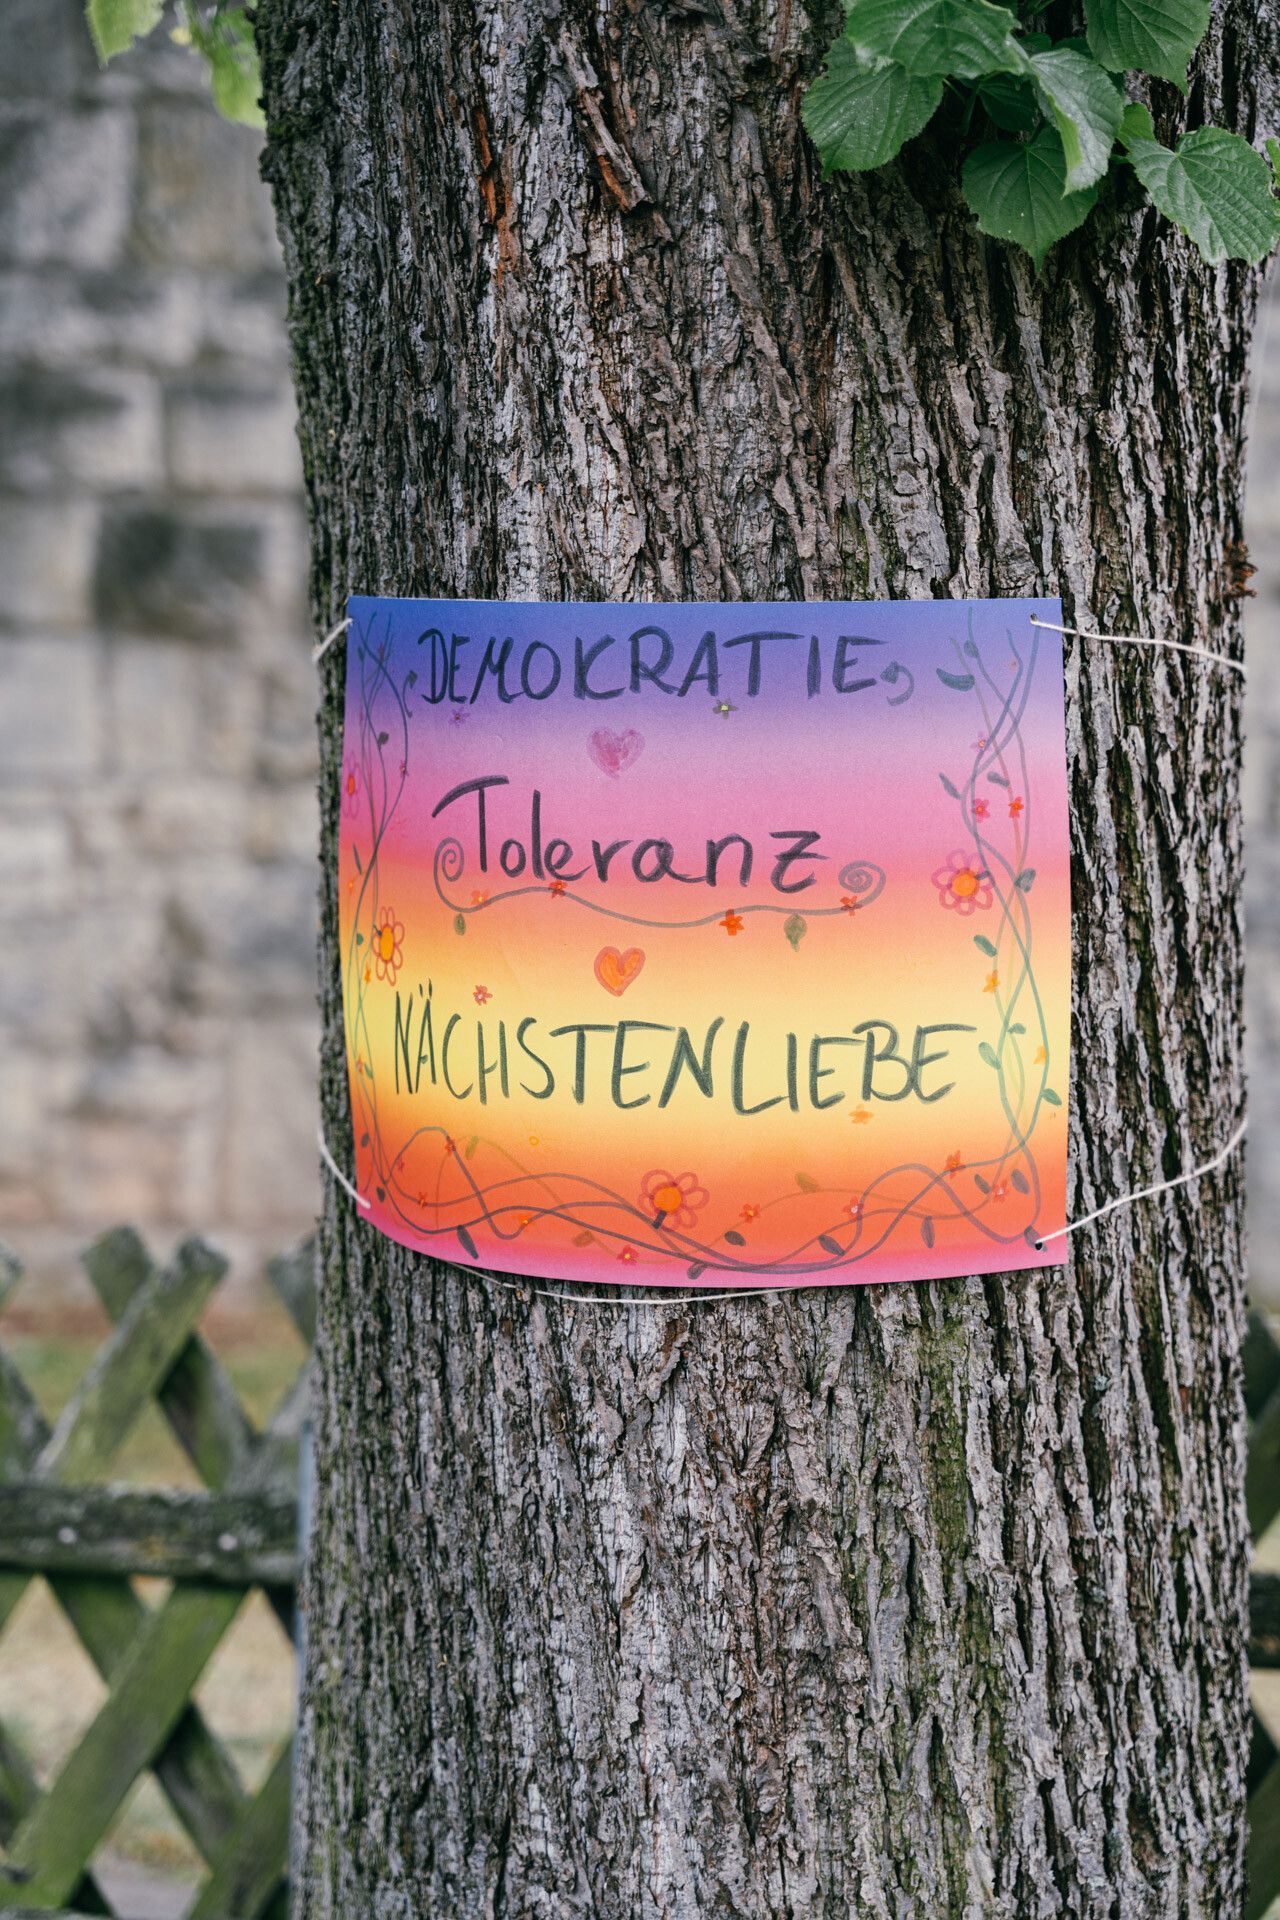 DEMOKRATIE,
Toleranz
NÄCHSTENLIEBE